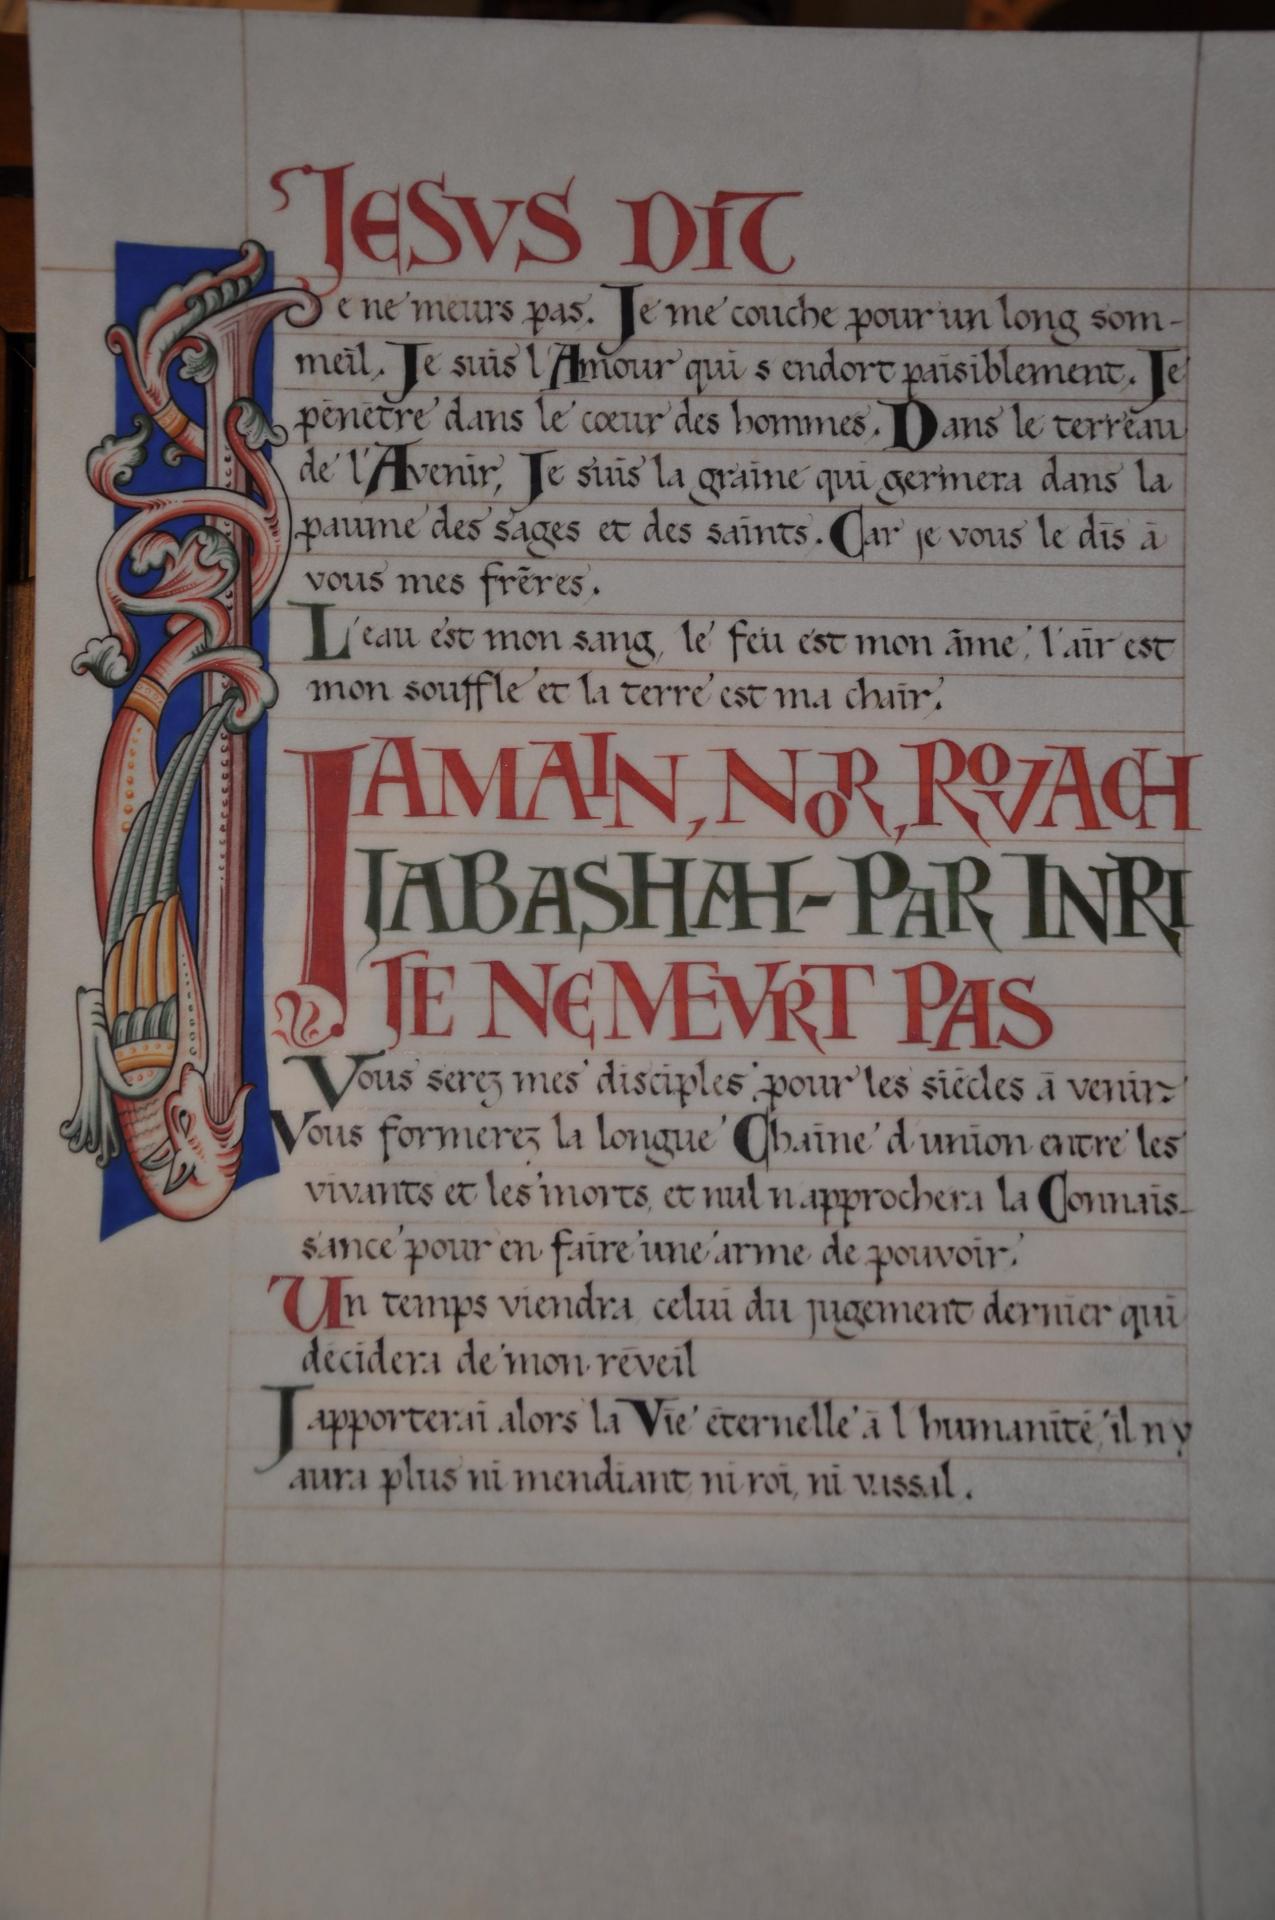 JESVS DIT
Je ne meurs pas. Je me couche pour un long som-
meil. Je suis l'Amour qui s endort paisiblement. Je
pénètre dans le cœur des hommes. Dans le terreau
de l'Avenir, Je suis la graine qui germera dans la
paume des sages et des saints. Car je vous le dis à
vous mes frères.
L'eau est mon sang, le feu est mon âme, l'air est
mon souffle et la terre est ma chair.
IAMAIN, NOR, ROVACH
IABASHAH - PAR INRI
JE NE MEVRT PAS
Vous serez mes disciples pour les siècles à venir.
Vous formerez la longue Chaîne d'union entre les
vivants et les morts, et nul n approchera la Connais-
sance pour en faire une arme de pouvoir.
Un temps viendra celui du jugement dernier qui
décidera de mon réveil
J apporterai alors la Vie éternelle à l humanité, il n y
aura plus ni mendiant, ni roi, ni vassal.